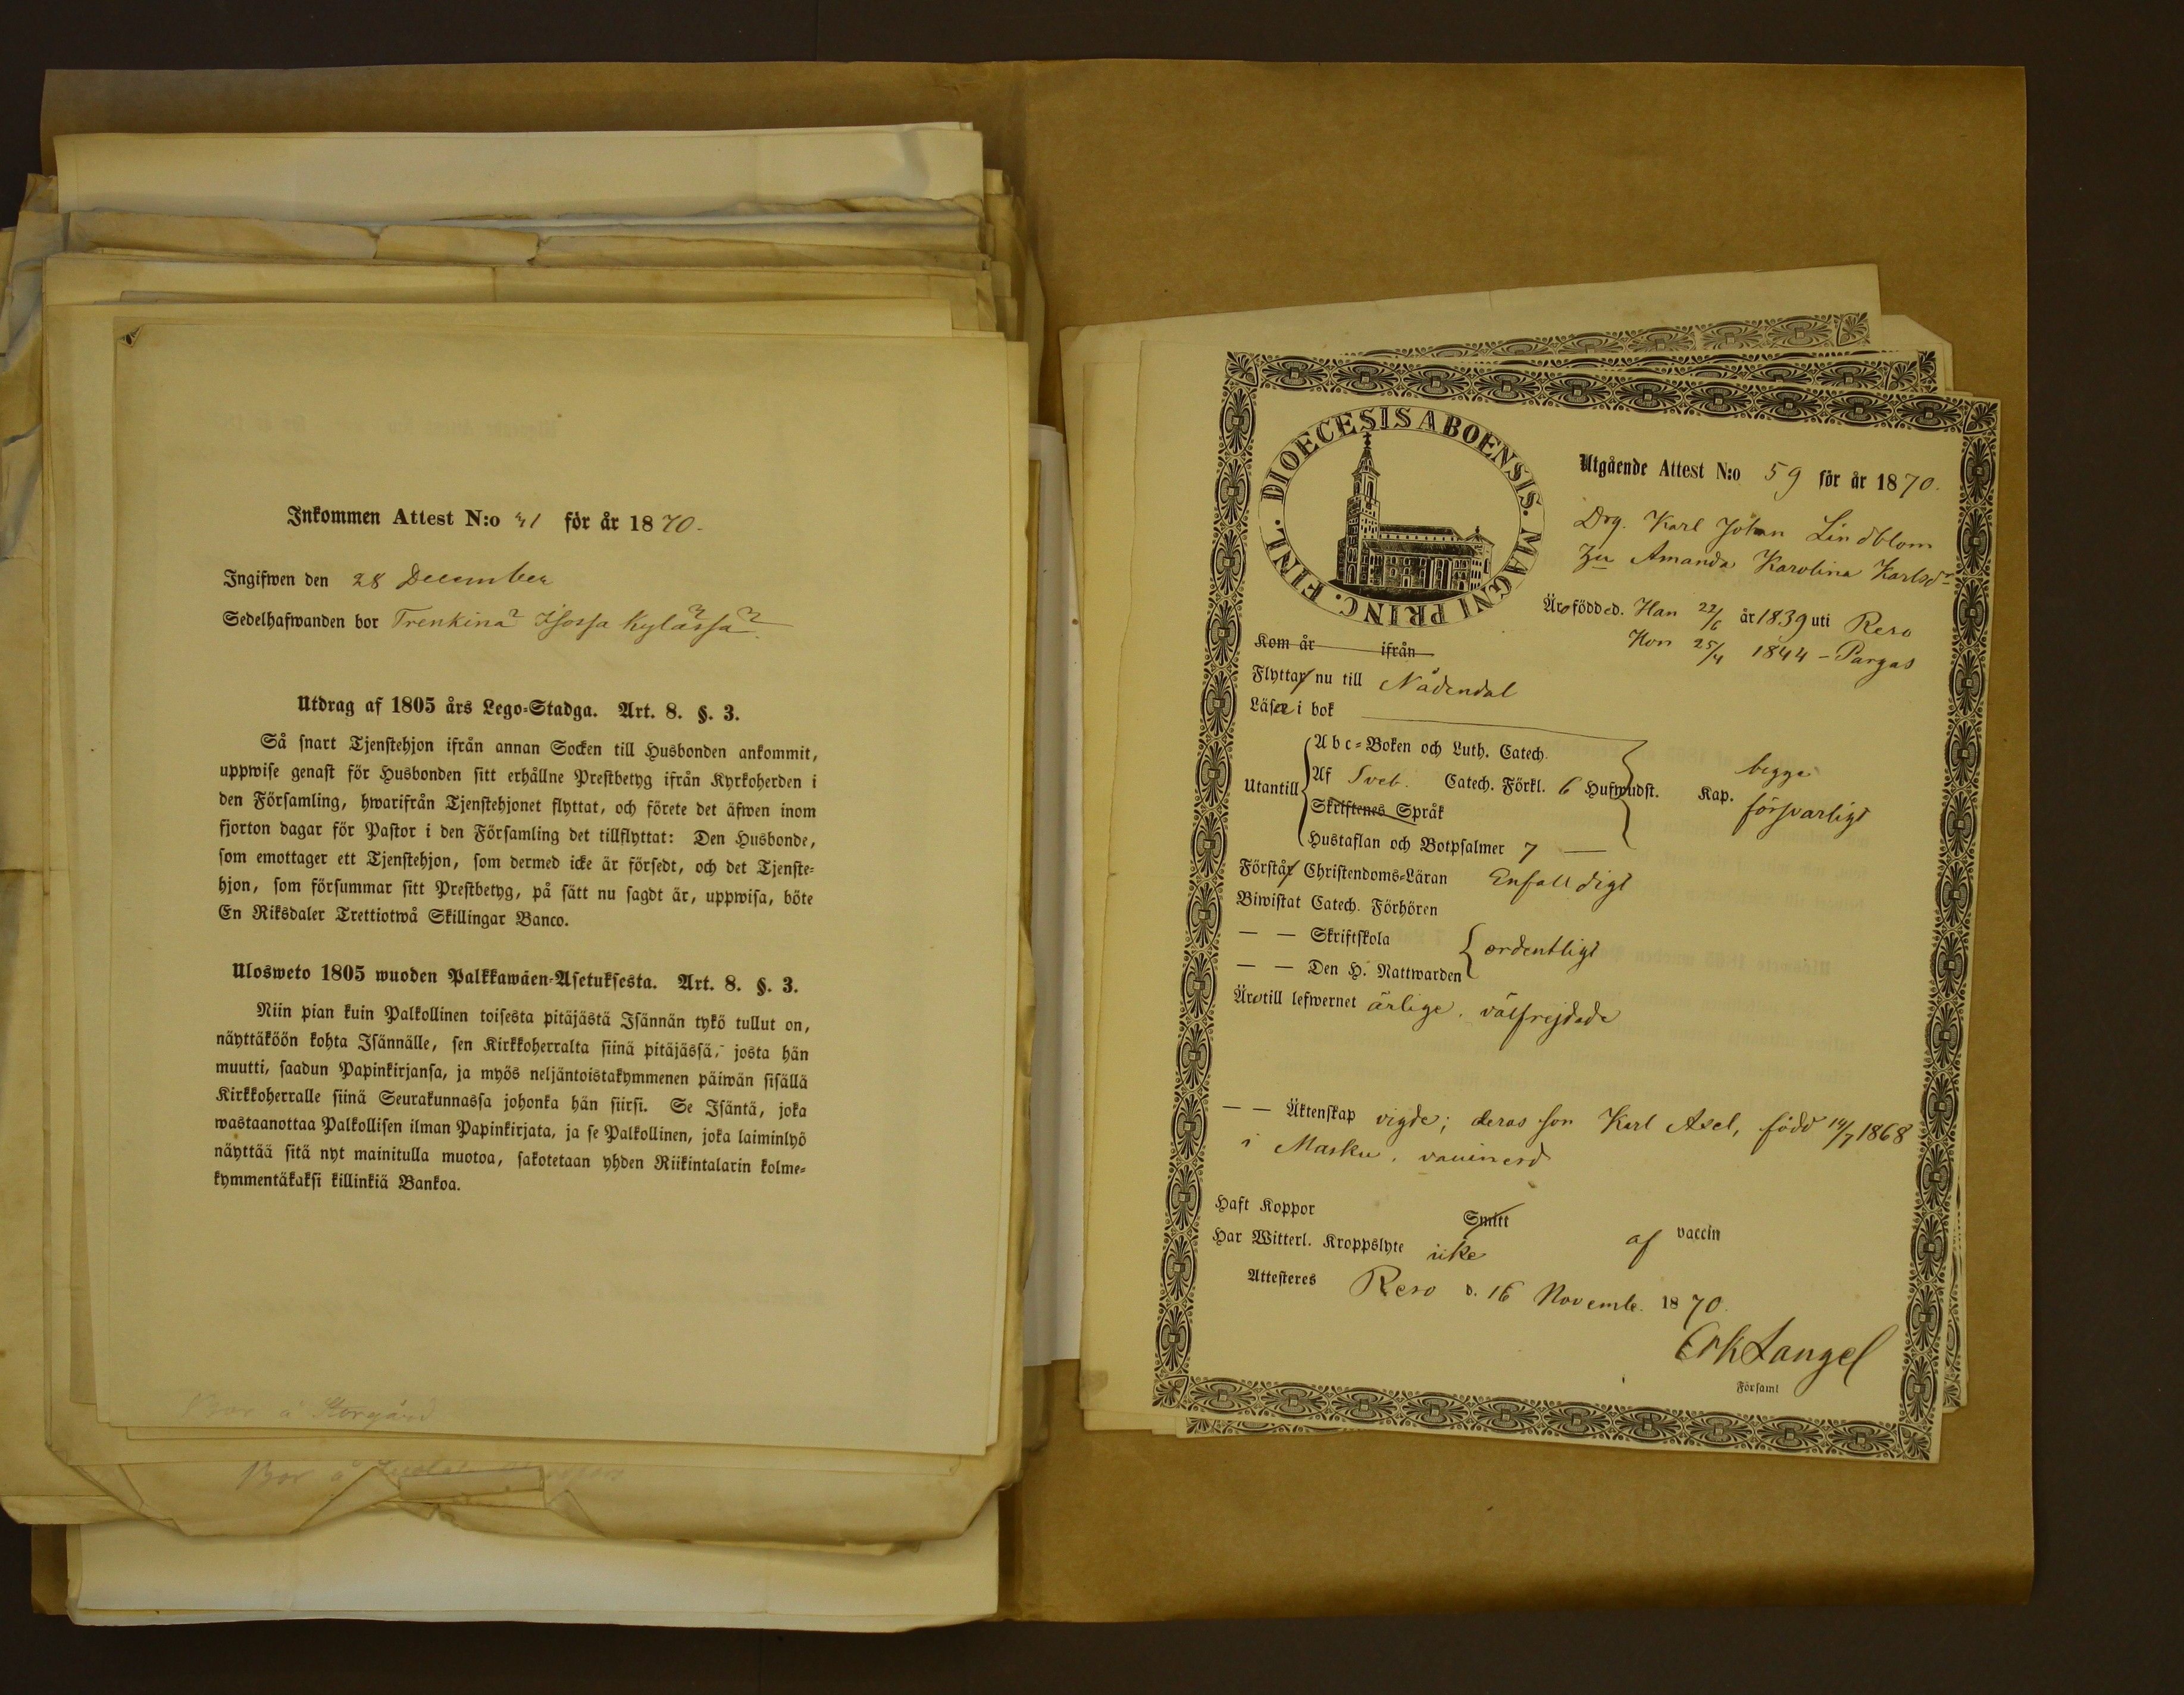 Inkommen Attest N:o 41 för år 1870.
Ingifwen den 28 December
Sedelhafwanden bor Trenkinä Isossa kylässä
Utdrag af 1805 års Lego-Stadga. Art. 8. §. 3.
Så snart Tjenstehjon ifrån annan Socken till Husbonden ankommit,
uppwise genast för Husbonden sitt erhållne Prestbetyg ifrån Kyrkoherden i
den Församling, hwarifrån Tjenstehjonet flyttat, och förete det äfwen inom
fjorton dagar för Pastor i den Församling det tillflyttat: Den Husbonde,
som emottager ett Tjenstehjon, som dermed icke är försedt, och det Tjenste-
hjon, som försummar sitt Prestbetyg, på sätt nu sagdt är, uppwisa, böte
En Riksdaler Trettiotwå Skillingar Banco.
Ulosweto 1805 wuoden Palkkawäen-Asetuksesta. Art. 8. §. 3.
Niin pian kuin Palkollinen toisesta pitäjästä Isännän tykö tullut on,
näyttäköön kohta Isännälle, sen Kirkkoherralta siinä pitäjässä, josta hän
muutti, saadun Papinkirjansa, ja myös neljäntoistakymmenen päiwän sisällä
Kirkkoherralle siinä Seurakunnassa johonka hän siirsi. Se Isäntä, joka
wastaanottaa Palkollisen ilman Papinkirjata, ja se Palkollinen, joka laiminlyö
näyttää sitä nyt mainitulla muotoa, sakotetaan yhden Riikintalarin kolme-
kymmentäkaksi killinkiä Bankoa.
Bor å Storgård
Bor å
DIOECESIS ABOENSIS. MAGNI PRINC. FINL.
Utgående Attest N:o 59 för år 1870.
Drg. Karl Johan Lindblom
Hu Amanda Karolina Karlsdr
Äro födde d. Han 22/6 år 1839 uti Reso
Hon 25/4 1844 - Pargas
Kom år ifrån
Flyttar nu till Nådendal
Läsa i bok
Abc-Boken och Luth. Catech.
Utantill Af Sveb. Catech. Förkl. 6 Hufwudst. Kap. begge försvarligt
Skriftenes Språk
Hustaflan och Botpsalmer 7 —
Förstår Christendoms-Läran Enfalldigt
Biwistat Catech. Förhören
— — Skriftskola ordentligt
— — Den H. Nattwarden
Äro till lefwernet ärlige, välfrejdade
— — Äktenskap vigde; deras son Karl Axel, född 14/7 1868
i Masku, vaccinerd
Haft Koppor Smitt af vaccin
Har Witterl. Kroppslyte icke
Attesteres Reso d. 16 Novemb. 1870.
Erk Langel
Församl